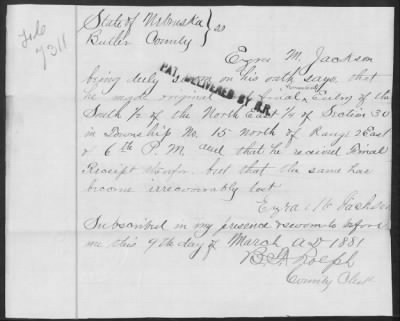 State of Nebraska } ss
Butler County
Ezra M. Jackson
being duly sworn on his oath says that
he made original Homestead & final Entry of the
South ½ of the North East ¼ of Section 30
in Township No. 15 north of Range 2 East
6th P. M. and that he recived Final
Receipt therefor. but that the same has
become irrecoverably lost
Ezra M Jackson
Subscribed in my presence & sworn to before
me this 9th day of March A D 1881
County Clerk
PAT. DELIVERED BY R.R.